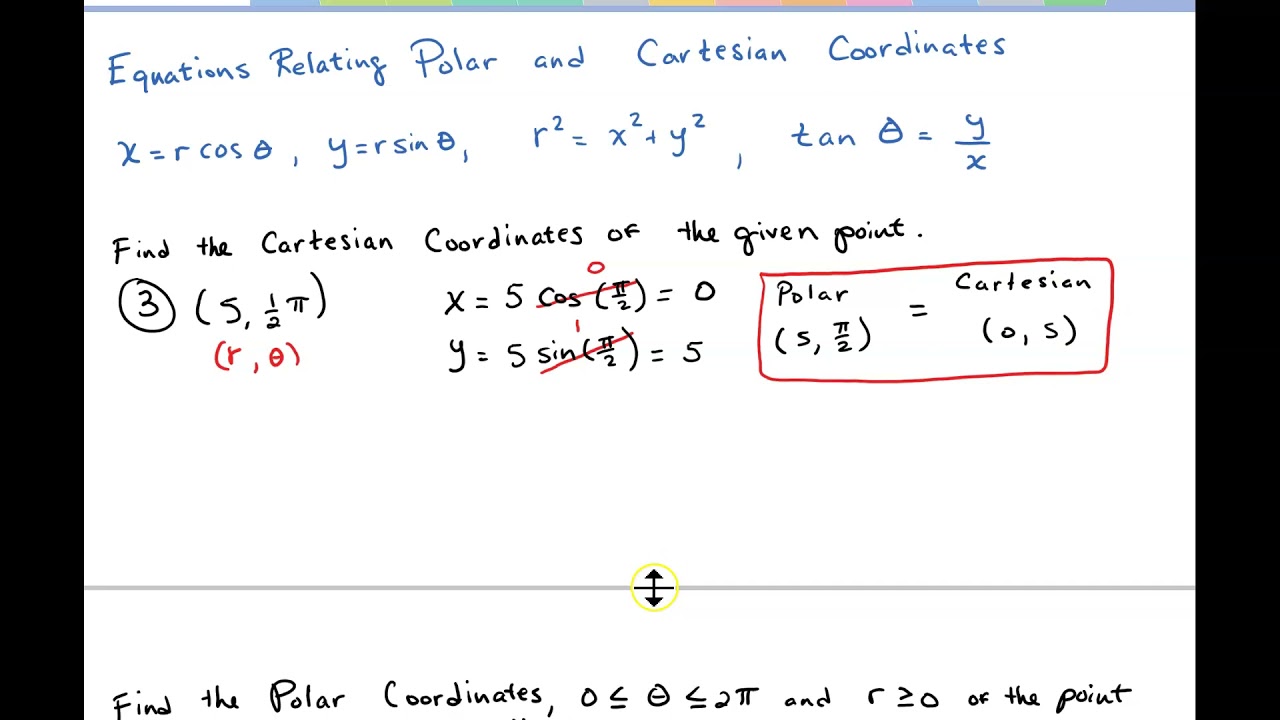 Equations Relating Polar and Cartesian Coordinates
x = r cos θ , y = r sin θ, r² = x² + y² , tan θ = y/x
Find the Cartesian Coordinates of the given point.
③ (5, ½ π)
(r, θ)
0
x = 5 cos (π/2) = 0
1
y = 5 sin(π/2) = 5
Polar = Cartesian
(5, π/2) (0, 5)
Find the Polar Coordinates, 0 ≤ θ ≤ 2π and r ≥ 0 of the point